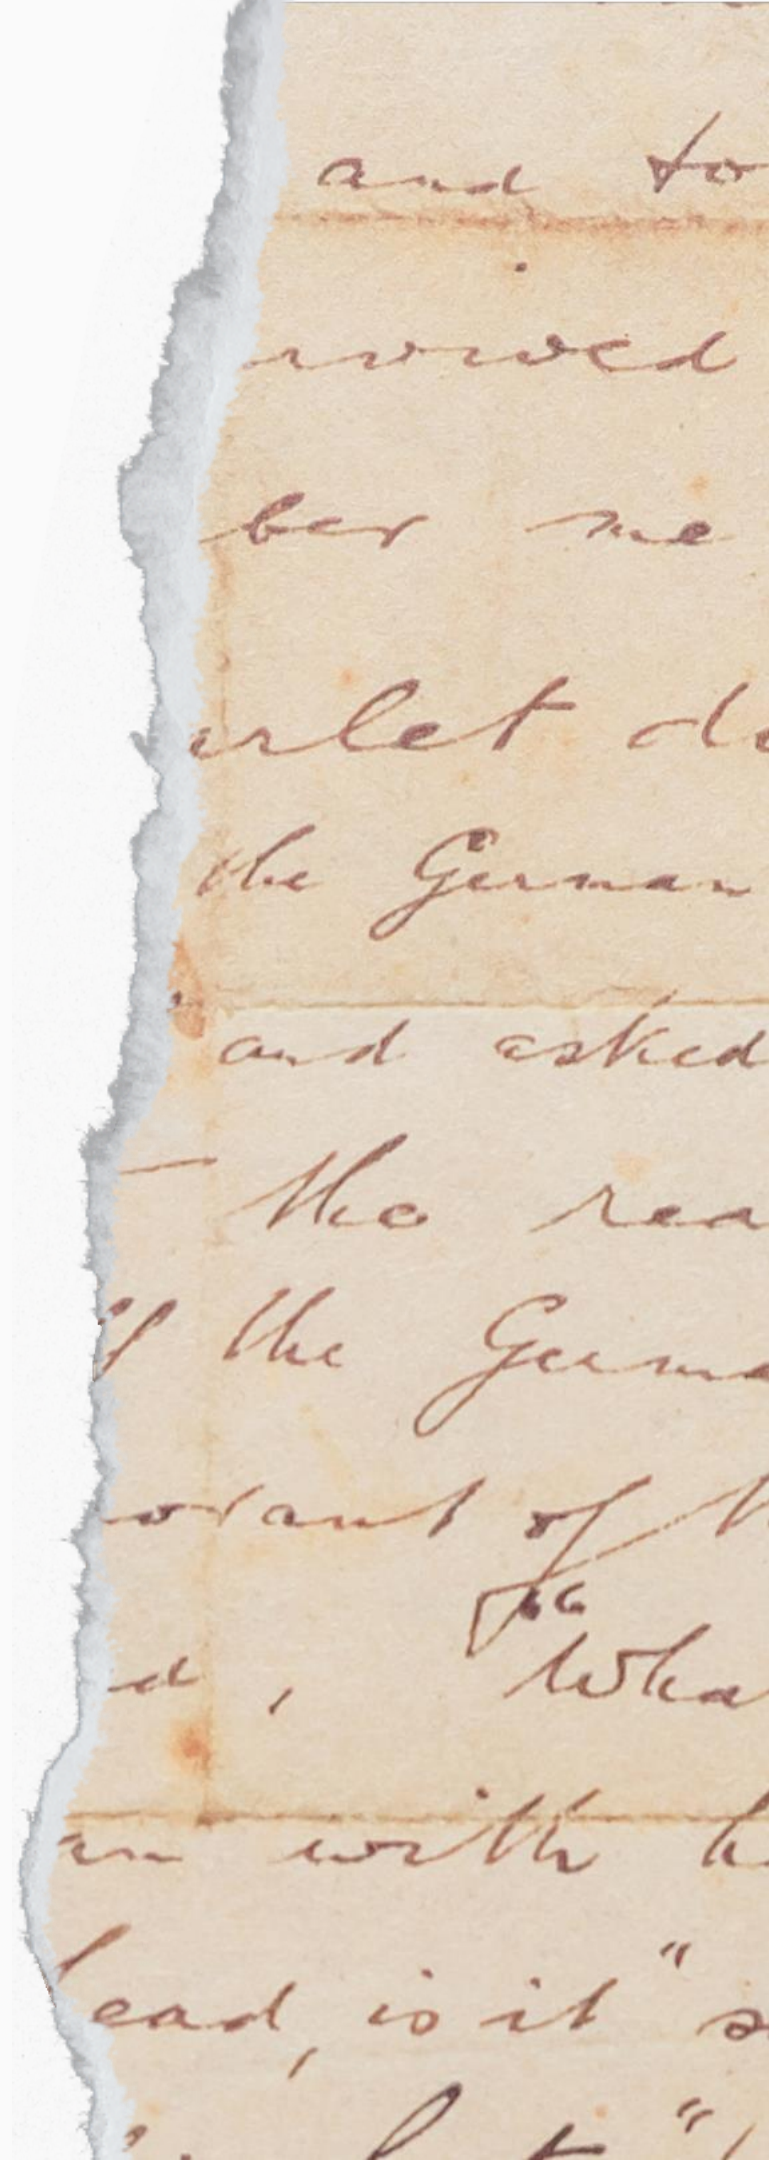 and to
rowed
ber me
arlet do
the German
and asked
— the rea
of the Germa
orant of th
d, "Wha
an with h
head, is it" s